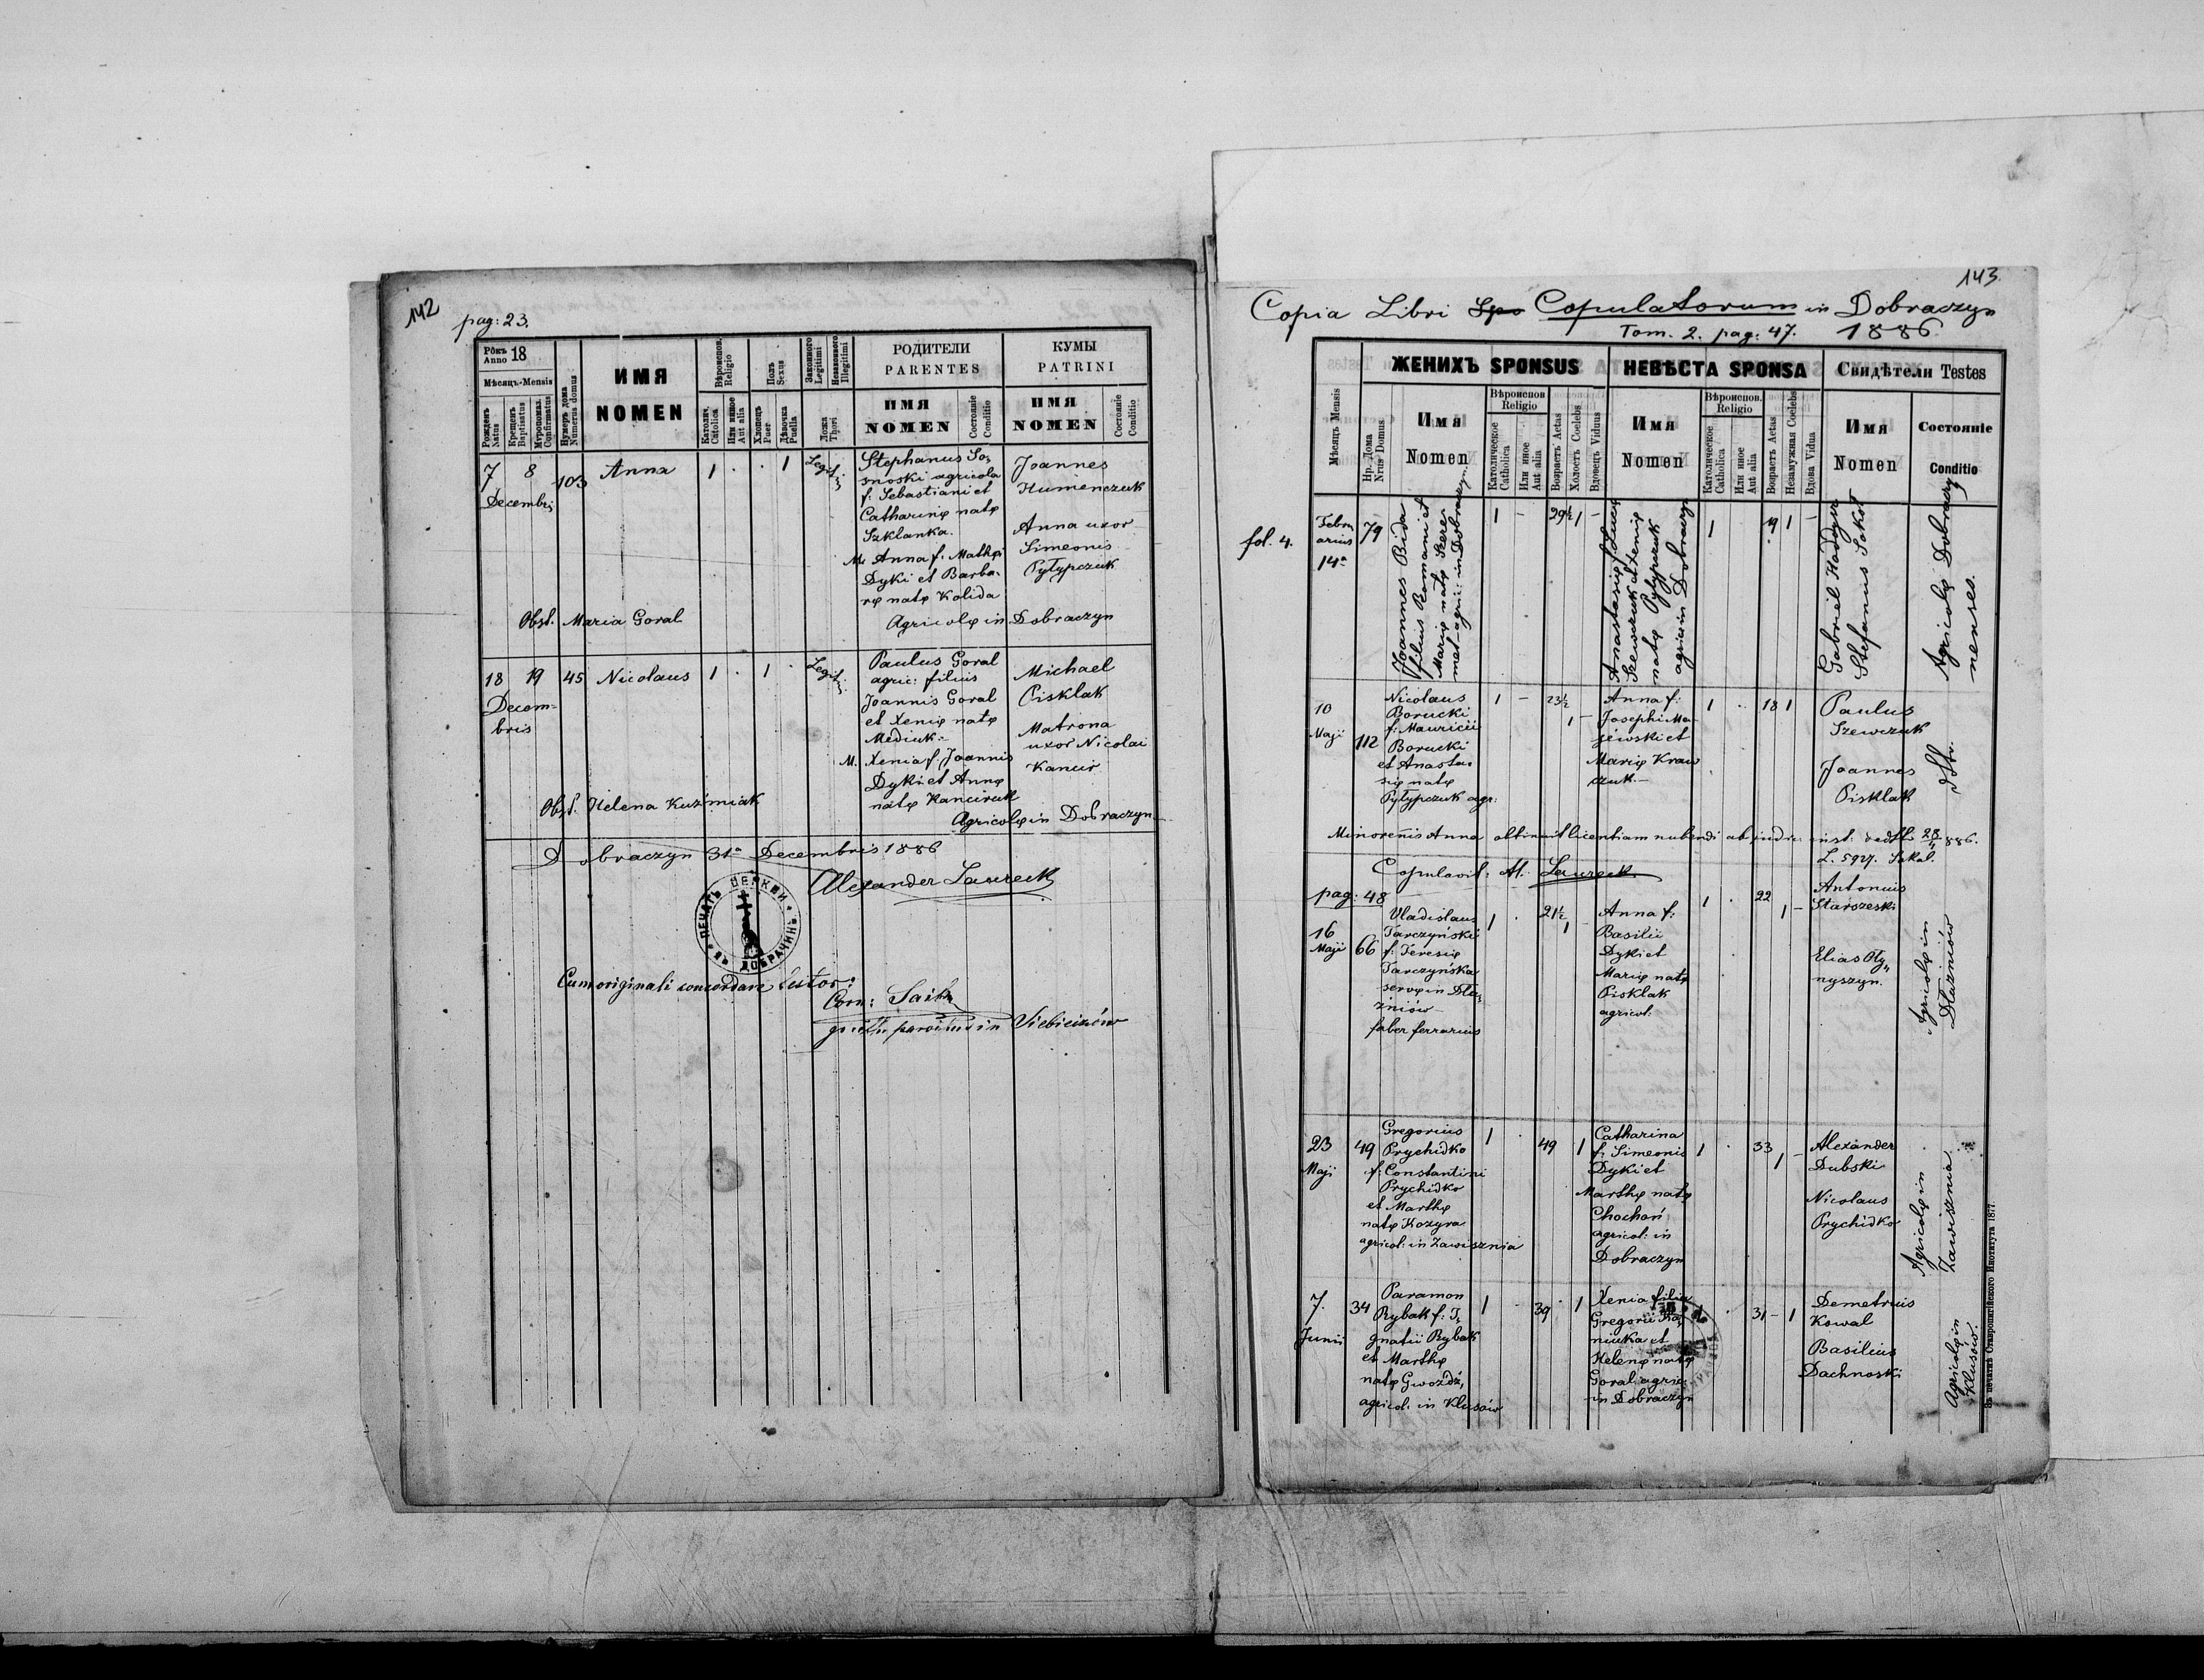 142
pag: 23.
Рôкъ Anno 18
Мѣсяць-Mensis
Рожденъ Natus
Крещенъ Baptisatus
Мѵропомаз. Confirmatus
Нумеръ дома Numerus domus
ИМЯ
NOMEN
Вѣроиспов. Religio
Католич. Catolica
Или иное Aut alia
Полъ Sexus
Хлопецъ Puer
Дѣвочка Puella
Законного Legitimi
Незаконного Illegitimi
Ложа Thori
РОДИТЕЛИ
PARENTES
ИМЯ
NOMEN
Состояніе Conditio
КУМЫ
PATRINI
ИМЯ
NOMEN
Состояніе Conditio
7 8 103 Anna 1 . . 1 Legit:
Decembris
Stephanus So-
snoski agricola
f: Sebastiani et
Catharinę natę
Szklanka.
M. Anna f: Mathęi
Dyki et Barba-
rę natę Kolida
Joannes
Humenczuk
Anna uxor
Simeonis
Pyłypczuk
Obst. Maria Goral
Agricolę in Dobraczyn
18 19 45 Nicolaus 1 . 1 . Legit:
Decem-
bris
Paulus Goral
agric: filius
Joannis Goral
et Xenię natę
Mediuk
M. Xenia f. Joannis
Dyki et Annę
natę Kanciruk
Michael
Pisklak
Matrona
uxor Nicolai
Kancir
Obst. Helena Kuźmiak
Agricolę in Dobraczyn
Dobraczyn 31ª Decembris 1886
Alexander Laureck
ПЕЧАТЬ ЦЕРКВИ ВЪ ДОБРАЧИНѢ
Cum originali concordare testor:
Corn:
in
143
Copia Libri Spo Copulatorum in Dobraczyn
Tom. 2. pag: 47. 1886.
Мѣсяць Mensis
Нр. Дома Nrus Domus
ЖЕНИХЪ SPONSUS
Имя
Nomen
Вѣроиспов Religio
Католическое Catholica
Или иное Aut alia
Возрастъ Aetas
Холостъ Coelebs
Вдовецъ Viduus
НЕВѢСТА SPONSA
Имя
Nomen
Вѣроиспов. Religio
Католическое Catholica
Или иное Aut alia
Возрастъ Aetas
Незамужная Coelebs
Вдова Vidua
Свидѣтели Testes
Имя
Nomen
Состояніе
Conditio
fol. 4.
Febru
arius
14ª
79
Joannes Bida
filius Romani et
Marię natę Szere-
met agric: in Dobraczyn
1 - 29½ 1 -
Anastasia f: Lucę
Szewczuk et Xenię
natę Pyłypczuk
agric: in Dobraczyn
1 19 1 -
Gabriel Hadyna
Stefanus Sokot
Agricolę Dobraczy
nenses.
10
Maji
112
Nicolaus
Borucki
f: Mauricii
Borucki
et Anasta-
się natę
Pyłypczuk agr:
1 - 23½ 1 -
Anna f:
Josephi Ma-
jewski et
Marię Kraw
czuk.-
1 . 18 1
Paulus
Szewczuk
Joannes
Pisklak
dtto.
Minorenis Anna obtinuit licentiam nubendi ab judic: inst: dedtto 28/4 886.
L. 5927. Sokal.
Copulavit: Al. Laureck
pag: 48
16
Maji
66
Vladislaus
Tarczyński
f: Teresię
Tarczyńska
servę in Dła-
źniów
faber ferrarius
1 . 21½ 1 -
Anna f:
Basilii
Dyki et
Marię natę
Pisklak
agricol:
1 . 22 1 -
Antonius
Starszeski
Elias Oły-
nyszyn.
Agricolę in
Dłaźniów
23
Maji
49
Gregorius
Prychidko
f: Constantini
Prychidko
et Marthę
natę Kozyra
agricol: in Zawisznia
1 . 49 1
Catharina
f: Simeonis
Dyki et
Marthę natę
Chochoń
agricol: in
Dobraczyn
1 . 33 1 -
Alexander
Dubski
Nicolaus
Prychidko
Agricolę in
Zawisznia.
7.
Junii
34
Paramon
Rybak f: I-
gnatii Rybak
et Marthę
natę Gwoźdź,
agricol: in Klusów
1 . 39 . 1
Xenia filia
Gregorii Ka-
niuka et
Helenę natę
Goral agric:
in Dobraczyn
31 - 1
Demetrius
Kowal
Basilius
Dachnoski
Agricolę in
Klusów.
Въ печатнѣ Ставропигійского Института 1877.